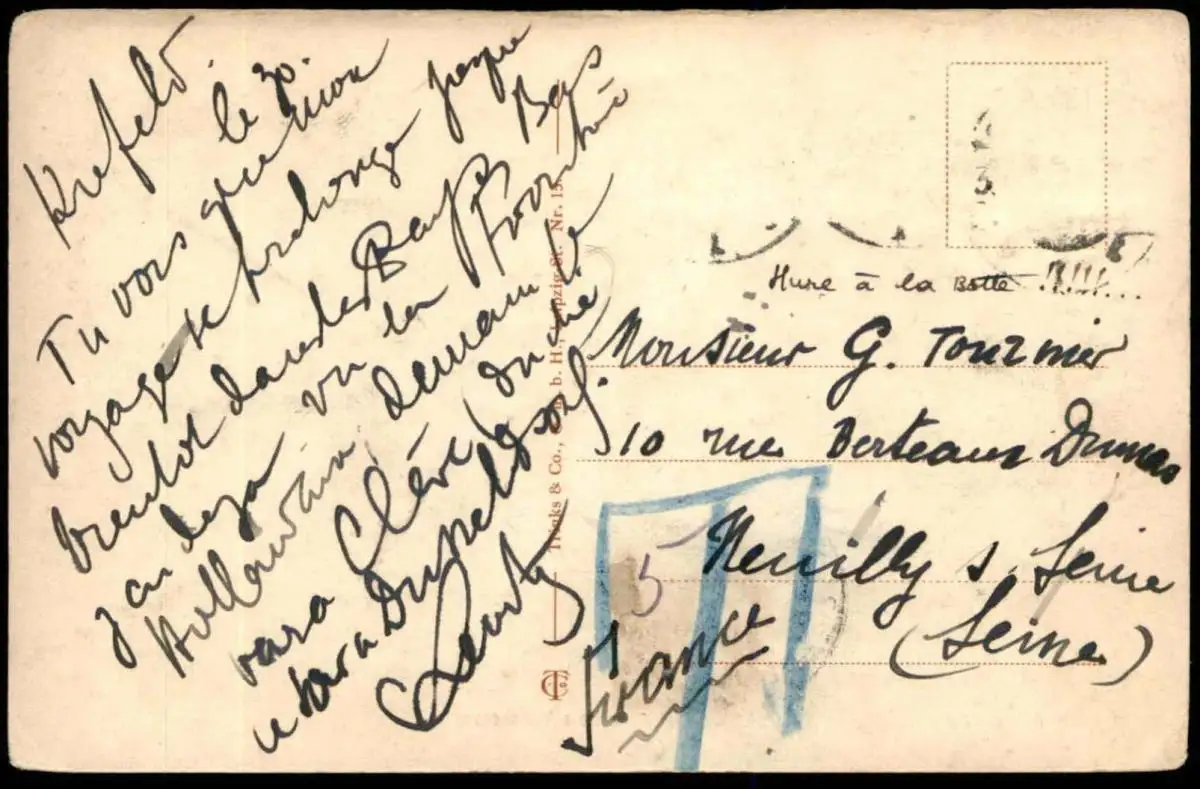 Krefeld.
le 30.
Tu vois que mon
voyage se prolonge jusque
bientot dans les Pays Bas
j'ai deja vu la frontière
Hollandaise, demain je
verai Clève, Duché
et sera Dusseldorf.
Hure à la Botte !!!!!...
Monsieur G. Tournier
10 rue Berteaux Dumas
Neuilly s Seine
(Seine)
France
5
& Co., b. H., Leipzig-St. Nr. 15